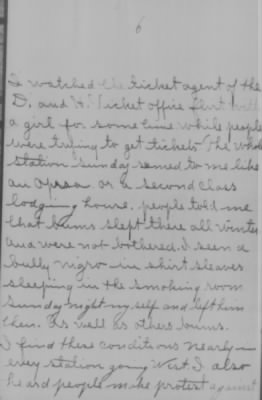 6
I watched the ticket agent of the
D. and H. Ticket office flirt with
a girl for some time while people
were trying to get tickets The whole
station Sunday semed to me like
an opraa or a second class
lodgoing house. people told me
that bums slept there all winter
and were not bothered. I seen a
bully nigro in shirt sleaves
sleeping in the smoking room
Sunday night my self and left him
then. As well as others bums.
I find there conditions nearly in
every station going West. I also
heard people make protest against